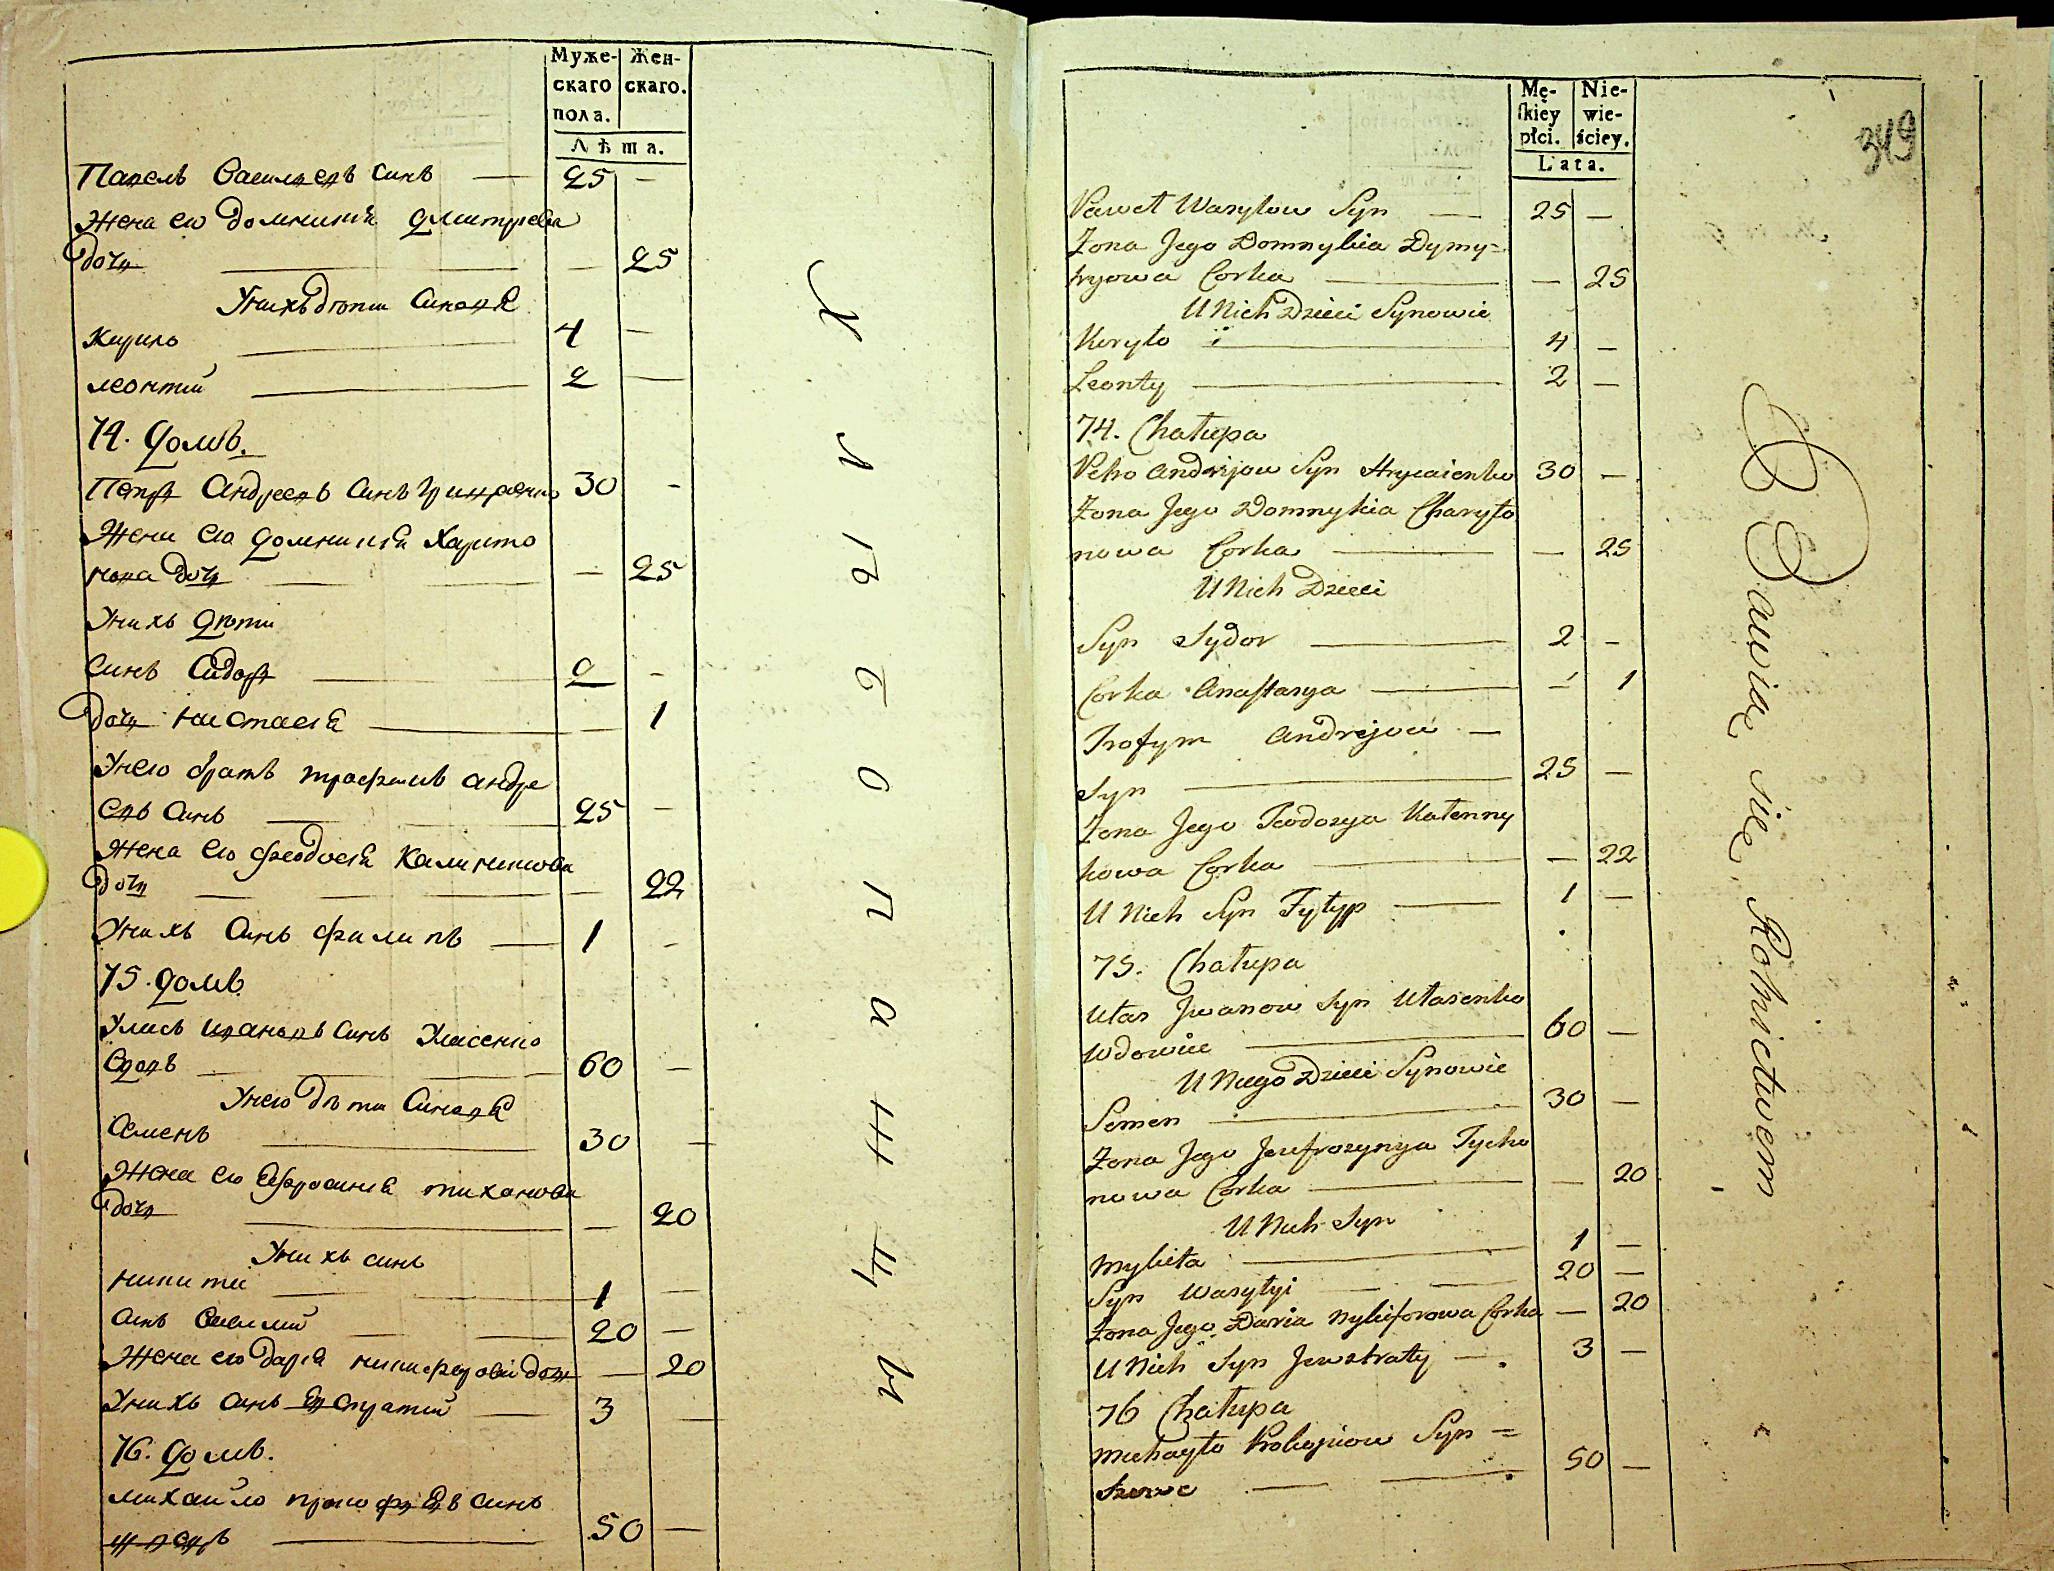 Муже-
скаго
пола.
Жен-
скаго.
Лѣта.
Павелъ Васильевъ синъ — 25 —
Жена его Домникия Дмитрева
дочь — — 25
У нихъ дѣти Синовя
Кирило — 4 —
леонтий — 2 —
74. Домъ.
Петръ Андреевъ Синъ Грицаенко 30 -
Жена его Домникия Харито
нова дочь — — 25
У нихъ Дѣти
Синъ Сидоръ — 2 -
дочь Настасия — — 1
У него братъ трофимъ андре
евъ Синъ — 25 —
Жена его феодосия Калиникова
дочь — — 22
У нихъ Синъ филипъ — 1 -
75. Домъ.
Уласъ Ивановъ Синъ Уласенко
Вдовъ — 60 —
У него дѣти Синовя
Семенъ — 30 —
Жена его Ефросиния тиханова
дочь — — 20
У нихъ синъ
никита — 1 —
Синъ Василий — 20 —
Жена его Дарія никифорова дочь — 20
У нихъ Синъ Евстратий — 3 —
76. Домъ.
михайло прокофіевъ Синъ
швецъ — 50 —
Хлѣбопашци
Mę-
skiey
płci.
Nie-
wie-
ściey.
Lata.
349
Paweł Wasylow Syn — 25 —
Żona Jego Domnykia Dymy=
tryowa Corka — — 25
U Nich Dzieci Synowie
Kyryło — 4 —
Leonty — 2 —
74. Chałupa
Petro Andrijow Syn Hrycaienko 30 —
Żona Jego Domnykia Charyto
nowa Corka — — 25
U Nich Dzieci
Syn Sydor — 2 —
Corka Anastasya — — 1
Trofym Andrejow —
Syn — 25 —
Żona Jego Teodosya Kalenny
kowa Corka — — 22
U Nich Syn Fyłyp — 1 —
75. Chałupa
Ułas Jwanow Syn Ułasenko
Wdowiec — 60 —
U Niego Dzieci Synowie
Semen — 30 —
Żona Jego Jeufrozynya Tycho
nowa Corka — — 20
U Nich Syn
Mykita — 1 —
Syn Wasylyi — 20 —
Żona Jego Daria Nykiforowa Corka — 20
U Nich Syn Jewstraty — 3 —
76 Chałupa
Michayło Prokopiow Syn =
Szewc — 50 —
Bawią się Rolnictwem